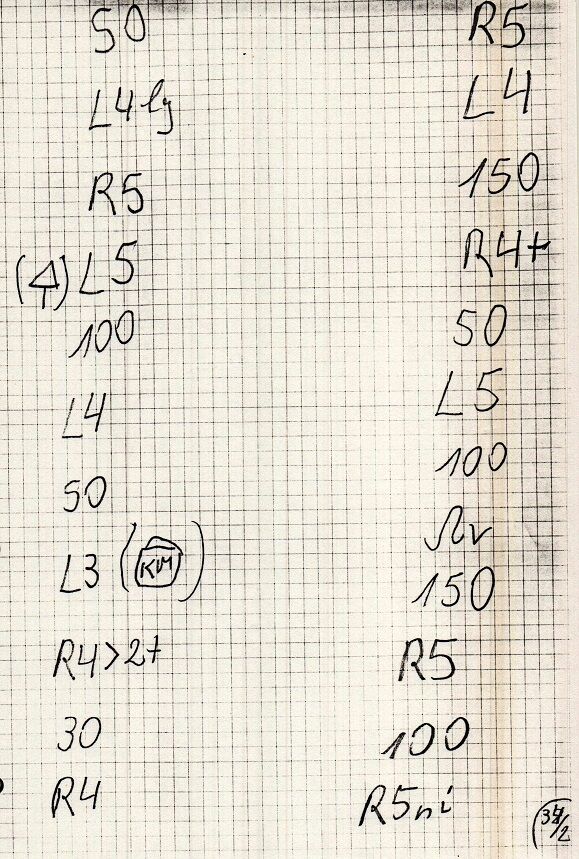 50
L4 lg
R5
(4) L5
100
L4
50
L3 (KM)
R4>2+
30
R4
R5
L4
150
R4+
50
L5
100
150
R5
100
R5ni